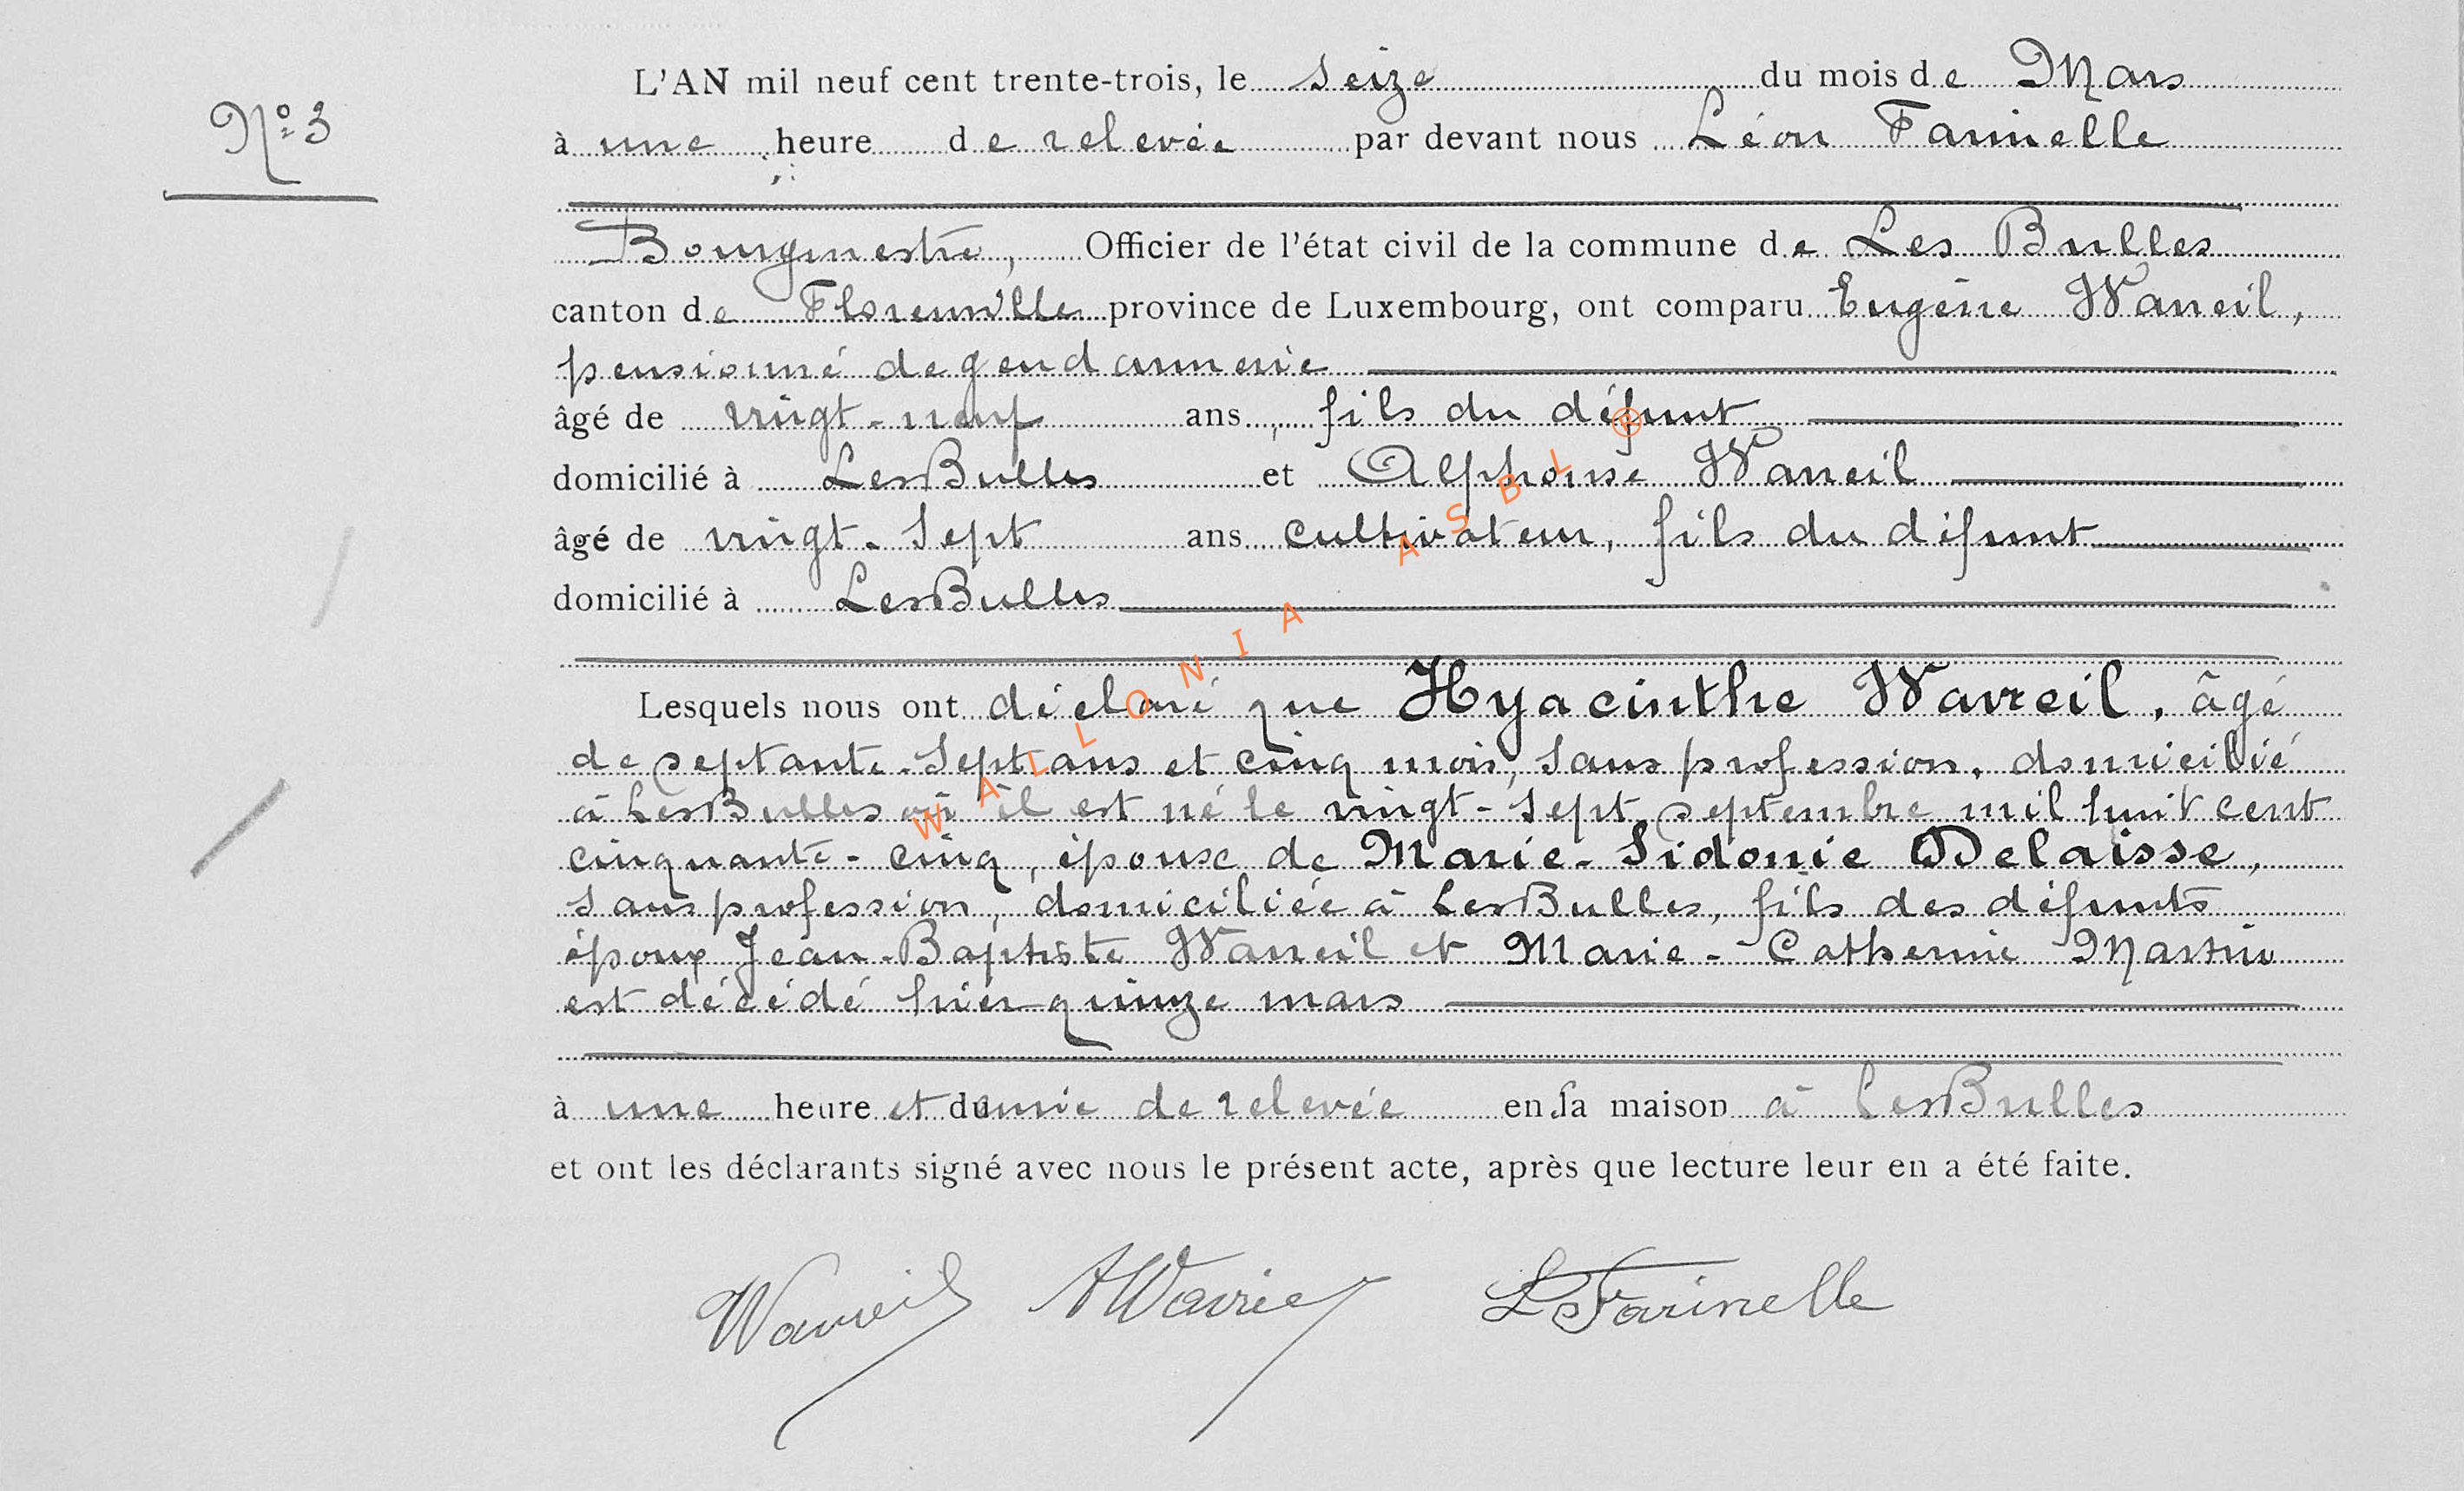 N° 3
L'AN mil neuf cent trente-trois, le seize du mois de Mars
à une heure de relevée par devant nous Léon Farinelle
Bourgmestre, Officier de l'état civil de la commune de Les Bulles
canton de Florenville province de Luxembourg, ont comparu Eugène Wavreil,
pensionné de gendarmerie
âgé de vingt-neuf ans, fils du défunt
domicilié à Les Bulles et Alphonse Wavreil
âgé de vingt-sept ans cultivateur, fils du défunt
domicilié à Les Bulles
Lesquels nous ont déclaré que Hyacinthe Wavreil, âgé
de septante-sept ans et cinq mois, sans profession, domicilié
à Les Bulles où il est né le vingt-sept septembre mil huit cent
cinquante-cinq, épouse de Marie-Sidonie Delaisse,
sans profession, domiciliée à Les Bulles, fils des défunts
époux Jean-Baptiste Wavreil et Marie-Catherine Martin
est décédé hier quinze mars
à une heure et demie de relevée en sa maison à Les Bulles
et ont les déclarants signé avec nous le présent acte, après que lecture leur en a été faite.
Wavreil AWavreil LFarinelle
WALLONIA ASBL ®